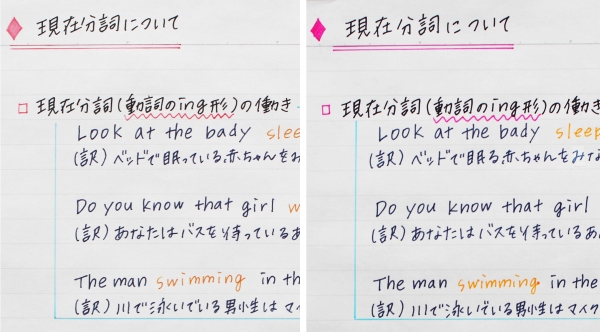 現在分詞について
現在分詞(動詞のing形)の働き
Look at the bady slee
(訳)ベッドで眠っている赤ちゃんをみ
Do you know that girl w
(訳)あなたはバスを待っているあ
The man swimming in th
(訳)川で泳いでいる男性はマイ
現在分詞について
現在分詞(動詞のing形)の働き
Look at the bady sleep
(訳)ベッドで眠る赤ちゃんをみな
Do you know that girl
(訳)あなたはバスを待っているあ
The man swimming in the
(訳)川で泳いでいる男性はマイク